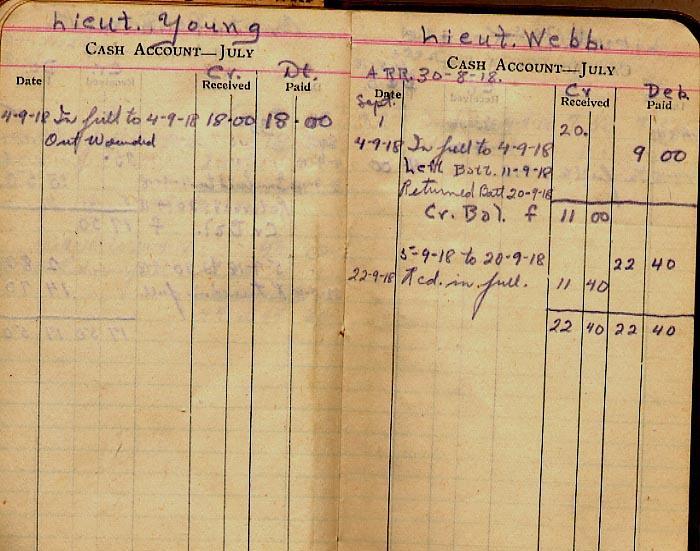 Lieut. Young
CASH ACCOUNT—JULY
Cr. Dt.
Date Received Paid
4-9-18 In full to 4-9-18 18-00 18-00
Out Wounded
Lieut. Webb.
CASH ACCOUNT—JULY
ARR. 30-8-18.
Cr Deb
Date Received Paid
Sept.
1 20.
4-9-18 In full to 4-9-18 9 00
Left Batt. 11-9-18
Returned Batt 20-9-18
Cr. Bal. f 11 00
5-9-18 to 20-9-18 22 40
22-9-18 Rcd. in full. 11 40
22 40 22 40